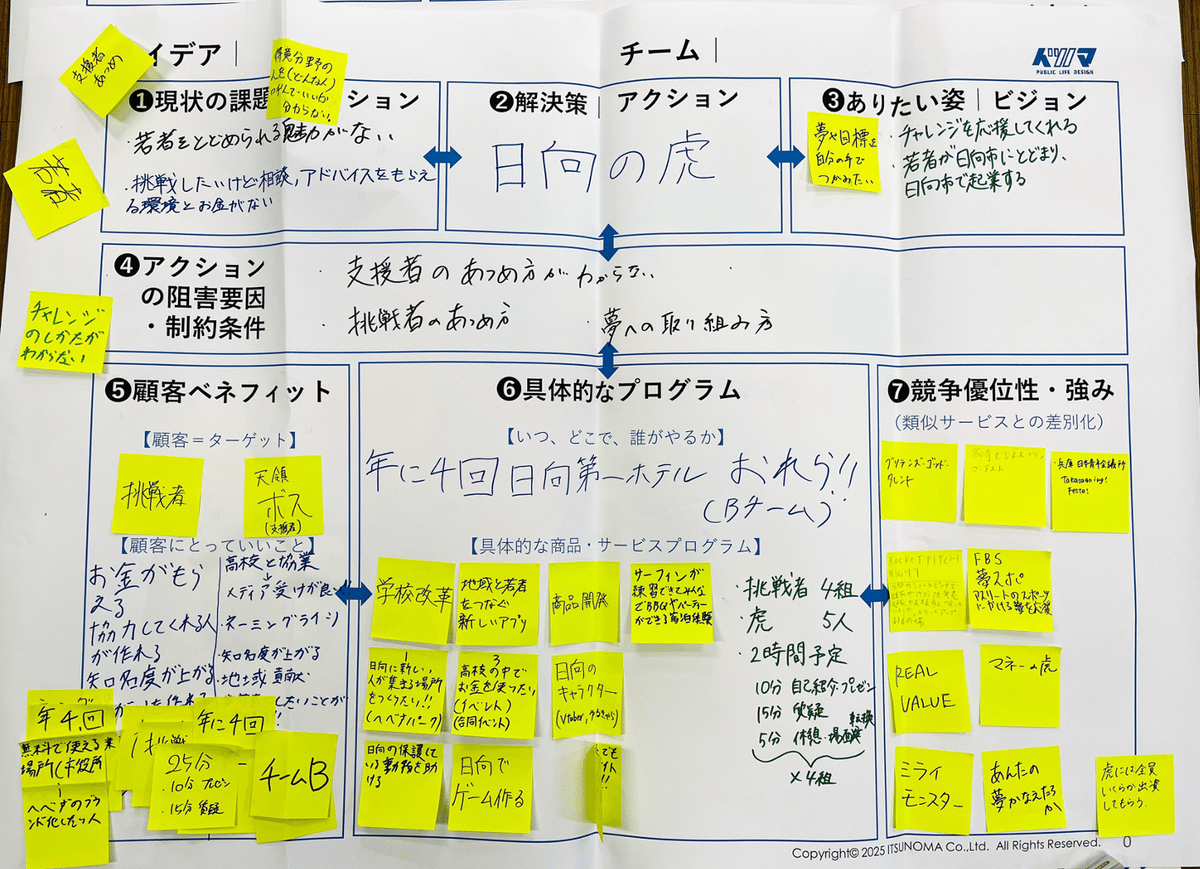 支援者
あつめ
イデア｜
チーム｜
ITSUNOMA
PUBLIC LIFE DESIGN
得意分野の
分からない。
❶現状の課題
ション
・若者をとどめられる魅力がない
・挑戦したいけど相談,アドバイスをもらえ
る環境とお金がない
若者
❷解決策｜アクション
日向の虎
❸ありたい姿｜ビジョン
夢や目標を
自分の手で
つかみたい
・チャレンジを応援してくれる
・若者が日向市にとどまり、
日向市で起業する
❹アクション
の阻害要因
・制約条件
・支援者のあつめ方がわからない
・挑戦者のあつめ方
・夢への取り組み方
チャレンジ
のしかたが
わからない
❺顧客ベネフィット
【顧客＝ターゲット】
挑戦者
天領
ボス
(支援者)
【顧客にとっていいこと】
お金がもら
える
協力してくれる人
が作れる
知名度が上がる
高校と協業
メディア受けが良い
・ネーミングライツ
・知名度が上がる
・地域貢献
年4回
無料で使える
場所(市役所
年に4回
挑戦
25分
・10分 プレゼン
・15分 質疑
チームB
❻具体的なプログラム
【いつ、どこで、誰がやるか】
年に4回 日向第一ホテル おれら!!
(Bチーム)
【具体的な商品・サービスプログラム】
学校改革
地域と若者
をつなぐ
新しいアプリ
商品開発
サーフィンが
練習できてみんな
でBBQやパーティー
ができる宿泊体験
1
日向に新しい
人が集まる場所
をつくりたい!!
(ヘベナパーク)
3
高校の中で
お金を使いたい
(イベント)
(合同イベント)
日向の
キャラクター
(Vtuber,ゆるきゃら)
日向の保護して
いる動物を助
ける
日向で
ゲーム作る
・挑戦者 4組
・虎 5人
・2時間予定
10分 自己紹介・プレゼン
15分 質疑
5分 休憩・場面転換
×4組
❼競争優位性・強み
（類似サービスとの差別化）
ブリテンズ・ゴッド・
タレント
・兵庫 日本青年会議所
Takasagoing!
Festa!
ROCKET PITCH
NIGHT
FBS
夢スポ
アスリートのスポーツ
にかける夢を応援
REAL
VALUE
マネーの虎
ミライ
モンスター
あんたの
夢かなえたろ
か
虎には全員
いくらか出資
してもらう
Copyright© 2025 ITSUNOMA Co.,Ltd. All Rights Reserved.
0